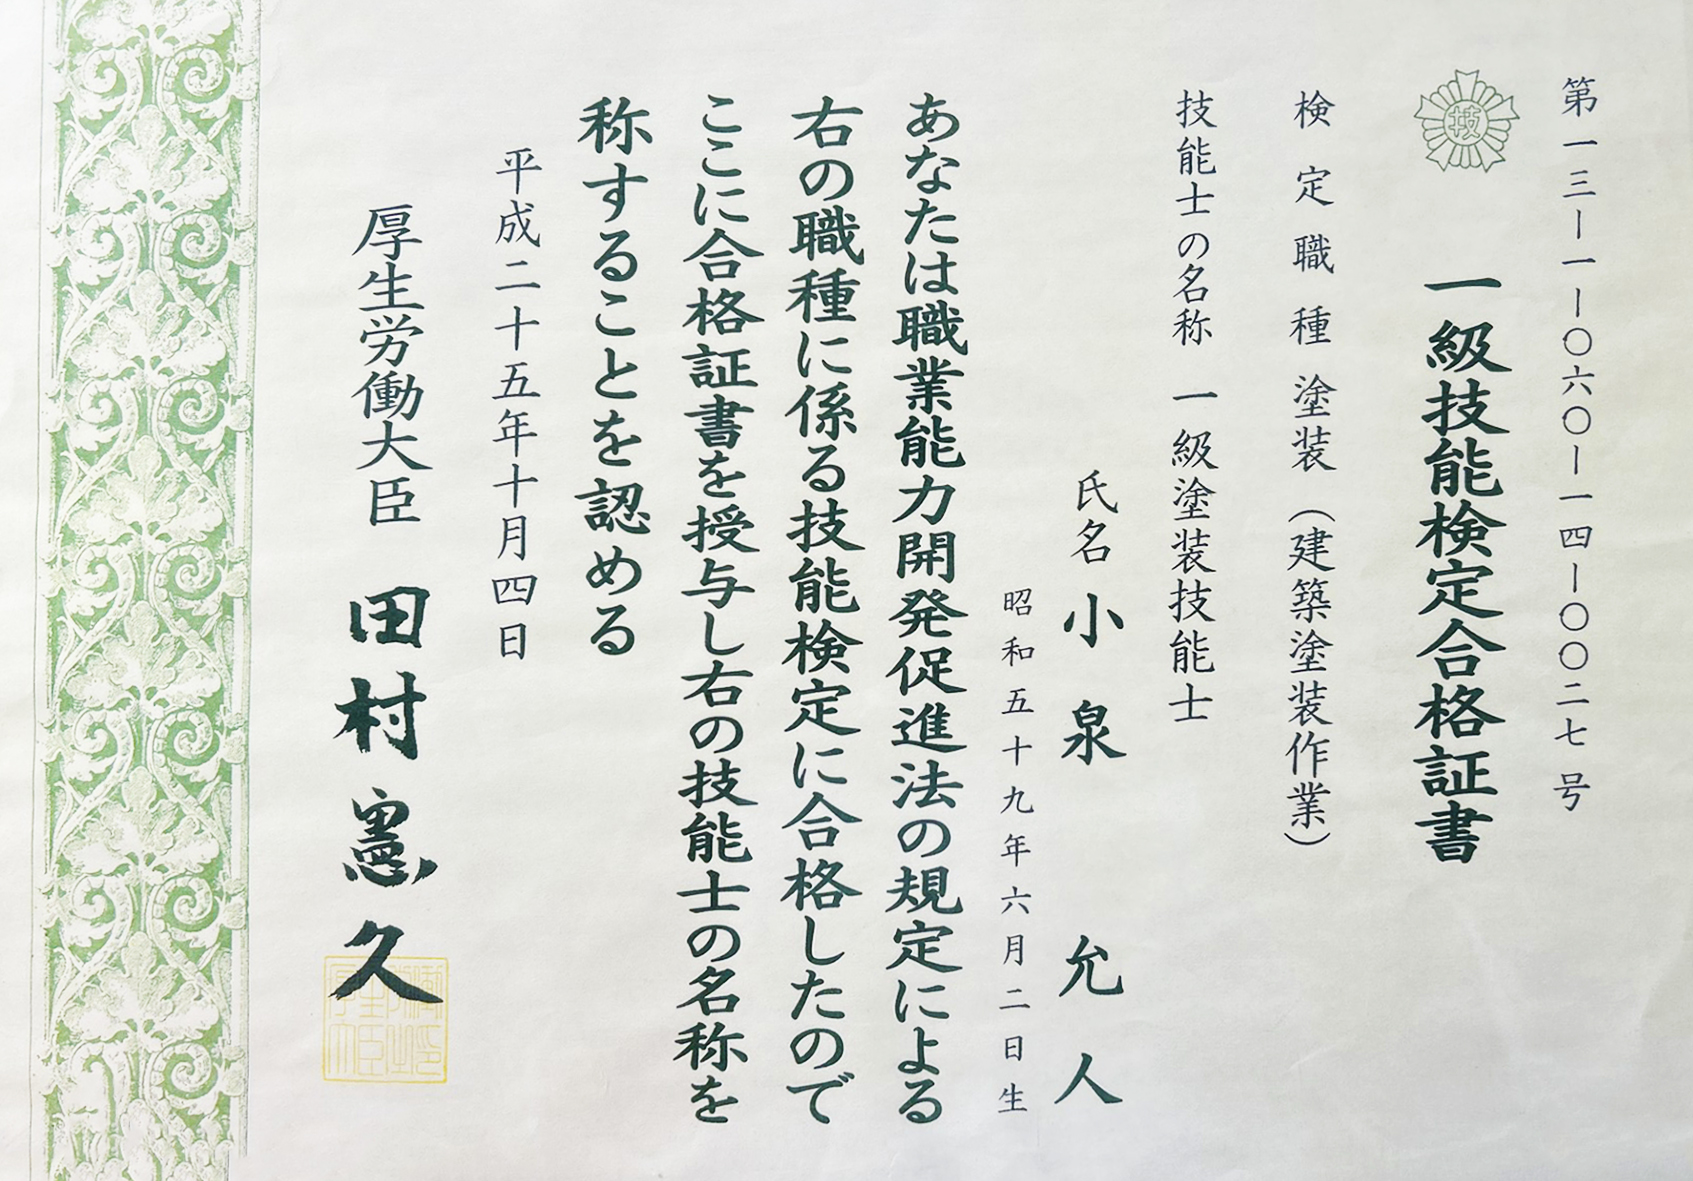 第一三ー一ー〇六〇ー一四ー〇〇二七号
技
一級技能検定合格証書
検定職種 塗装（建築塗装作業）
技能士の名称 一級塗装技能士
氏名 小泉 允人
昭和五十九年六月二日生
あなたは職業能力開発促進法の規定による
右の職種に係る技能検定に合格したので
ここに合格証書を授与し右の技能士の名称を
称することを認める
平成二十五年十月四日
厚生労働大臣 田村憲久